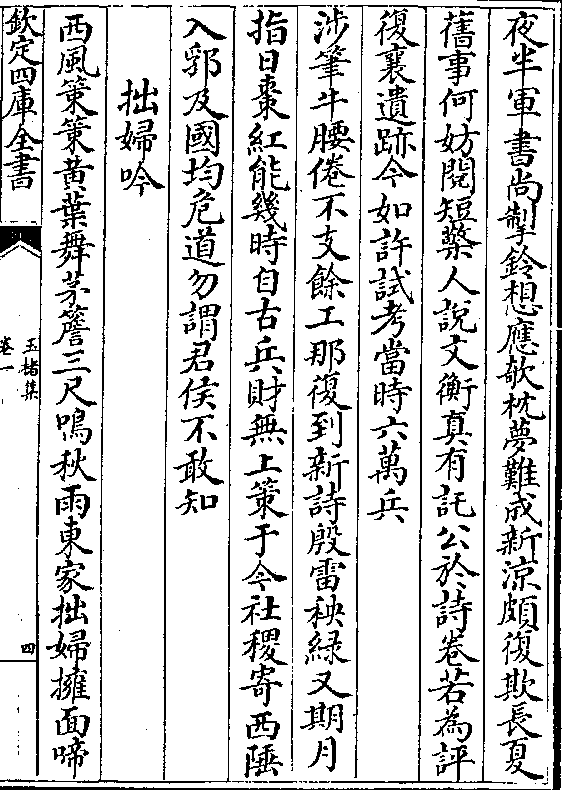 夜半軍書尚掣鈴想應欹枕夢難成新涼頗復欺長夏
舊事何妨閱短檠人說文衡真有託公於詩卷若為評
復襄遺跡今如許試考當時六萬兵
涉筆牛腰倦不支餘工那復到新詩殷雷秧綠又期月
指日棗紅能幾時自古兵財無上策于今社稷寄西陲
入郛及國均危道勿謂君侯不敢知
拙婦吟
西風策策黃葉舞茅簷三尺鳴秋雨東家拙婦擁面啼
欽定四庫全書
玉楮集
卷一
四